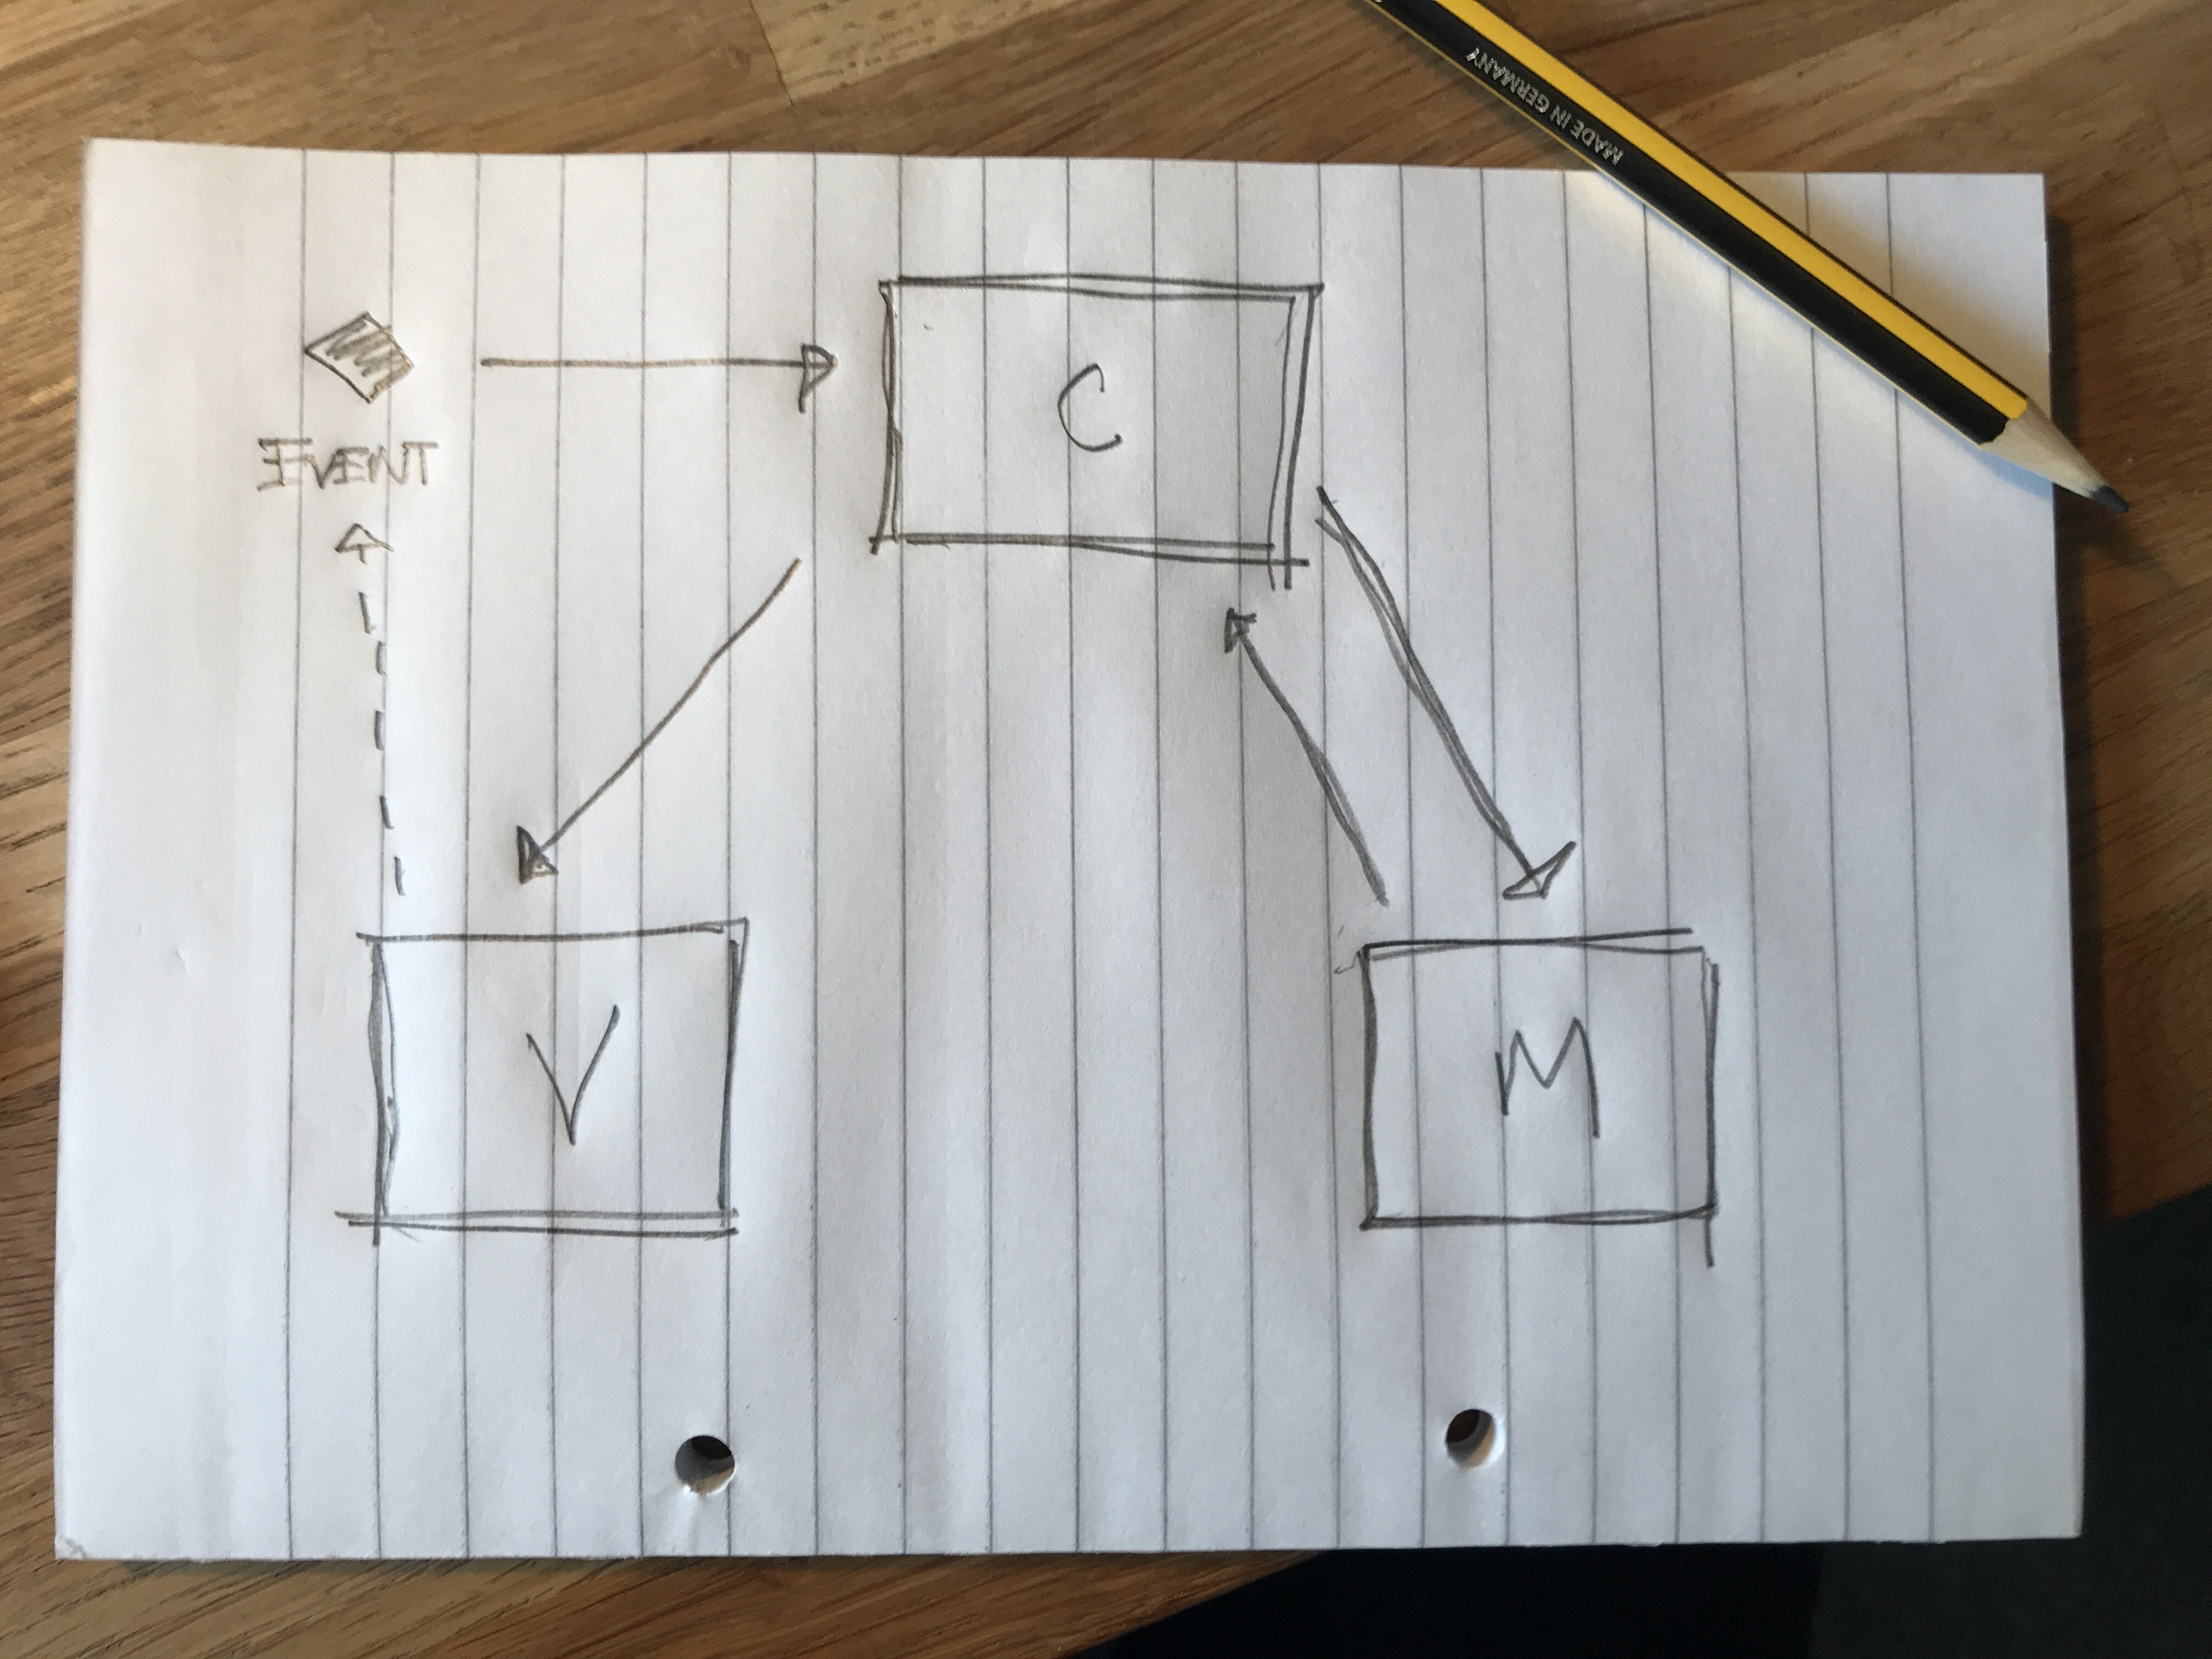 MADE IN GERMANY
C
EVENT
V
M